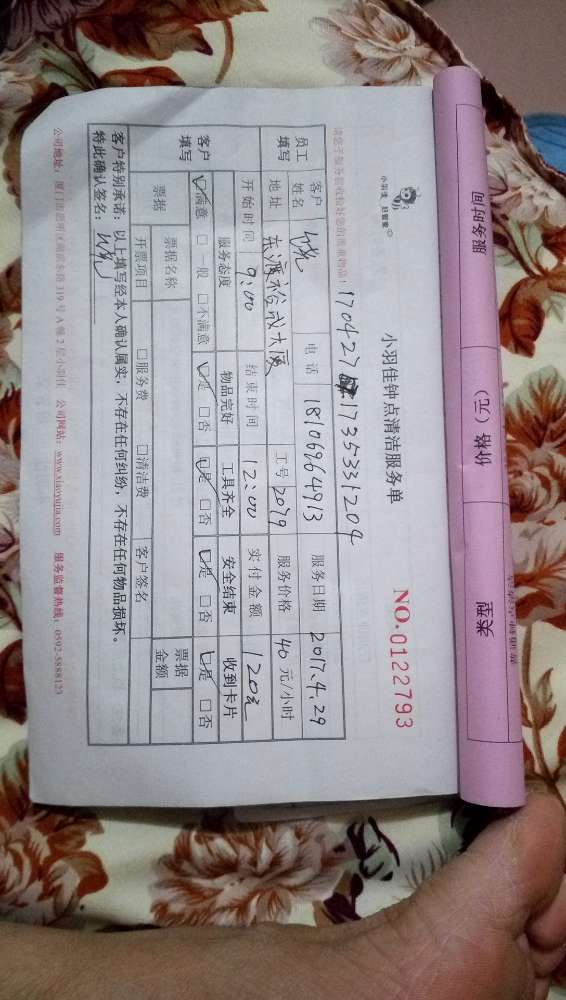 服务时间 价格（元） 类型
小羽佳 好管家
小羽佳钟点清洁服务单
NO.0122793
请您于服务前收捡好您的贵重物品！
员工填写
客户姓名 电话 18106964913 服务日期 2017.4.29
地址 工号 2079 服务价格 40 元/小时
开始时间 9:00 结束时间 12:00 实付金额 120元
客户填写
服务态度 物品完好 工具齐全 安全结束 收到卡片
☑满意 □一般 □不满意 ☑是 □否 ☑是 □否 ☑是 □否 ☑是 □否
票据 票据名称 票据金额
开票项目 □服务费 □清洁费 客户签名
客户特别承诺：以上填写经本人确认属实，不存在任何纠纷，不存在任何物品损坏。
特此确认签名：
公司地址：厦门市思明区 319 号 A 幢 2 层小羽佳 公司网站：www.xiaoyujia.com 服务监督热线：0592-5888123